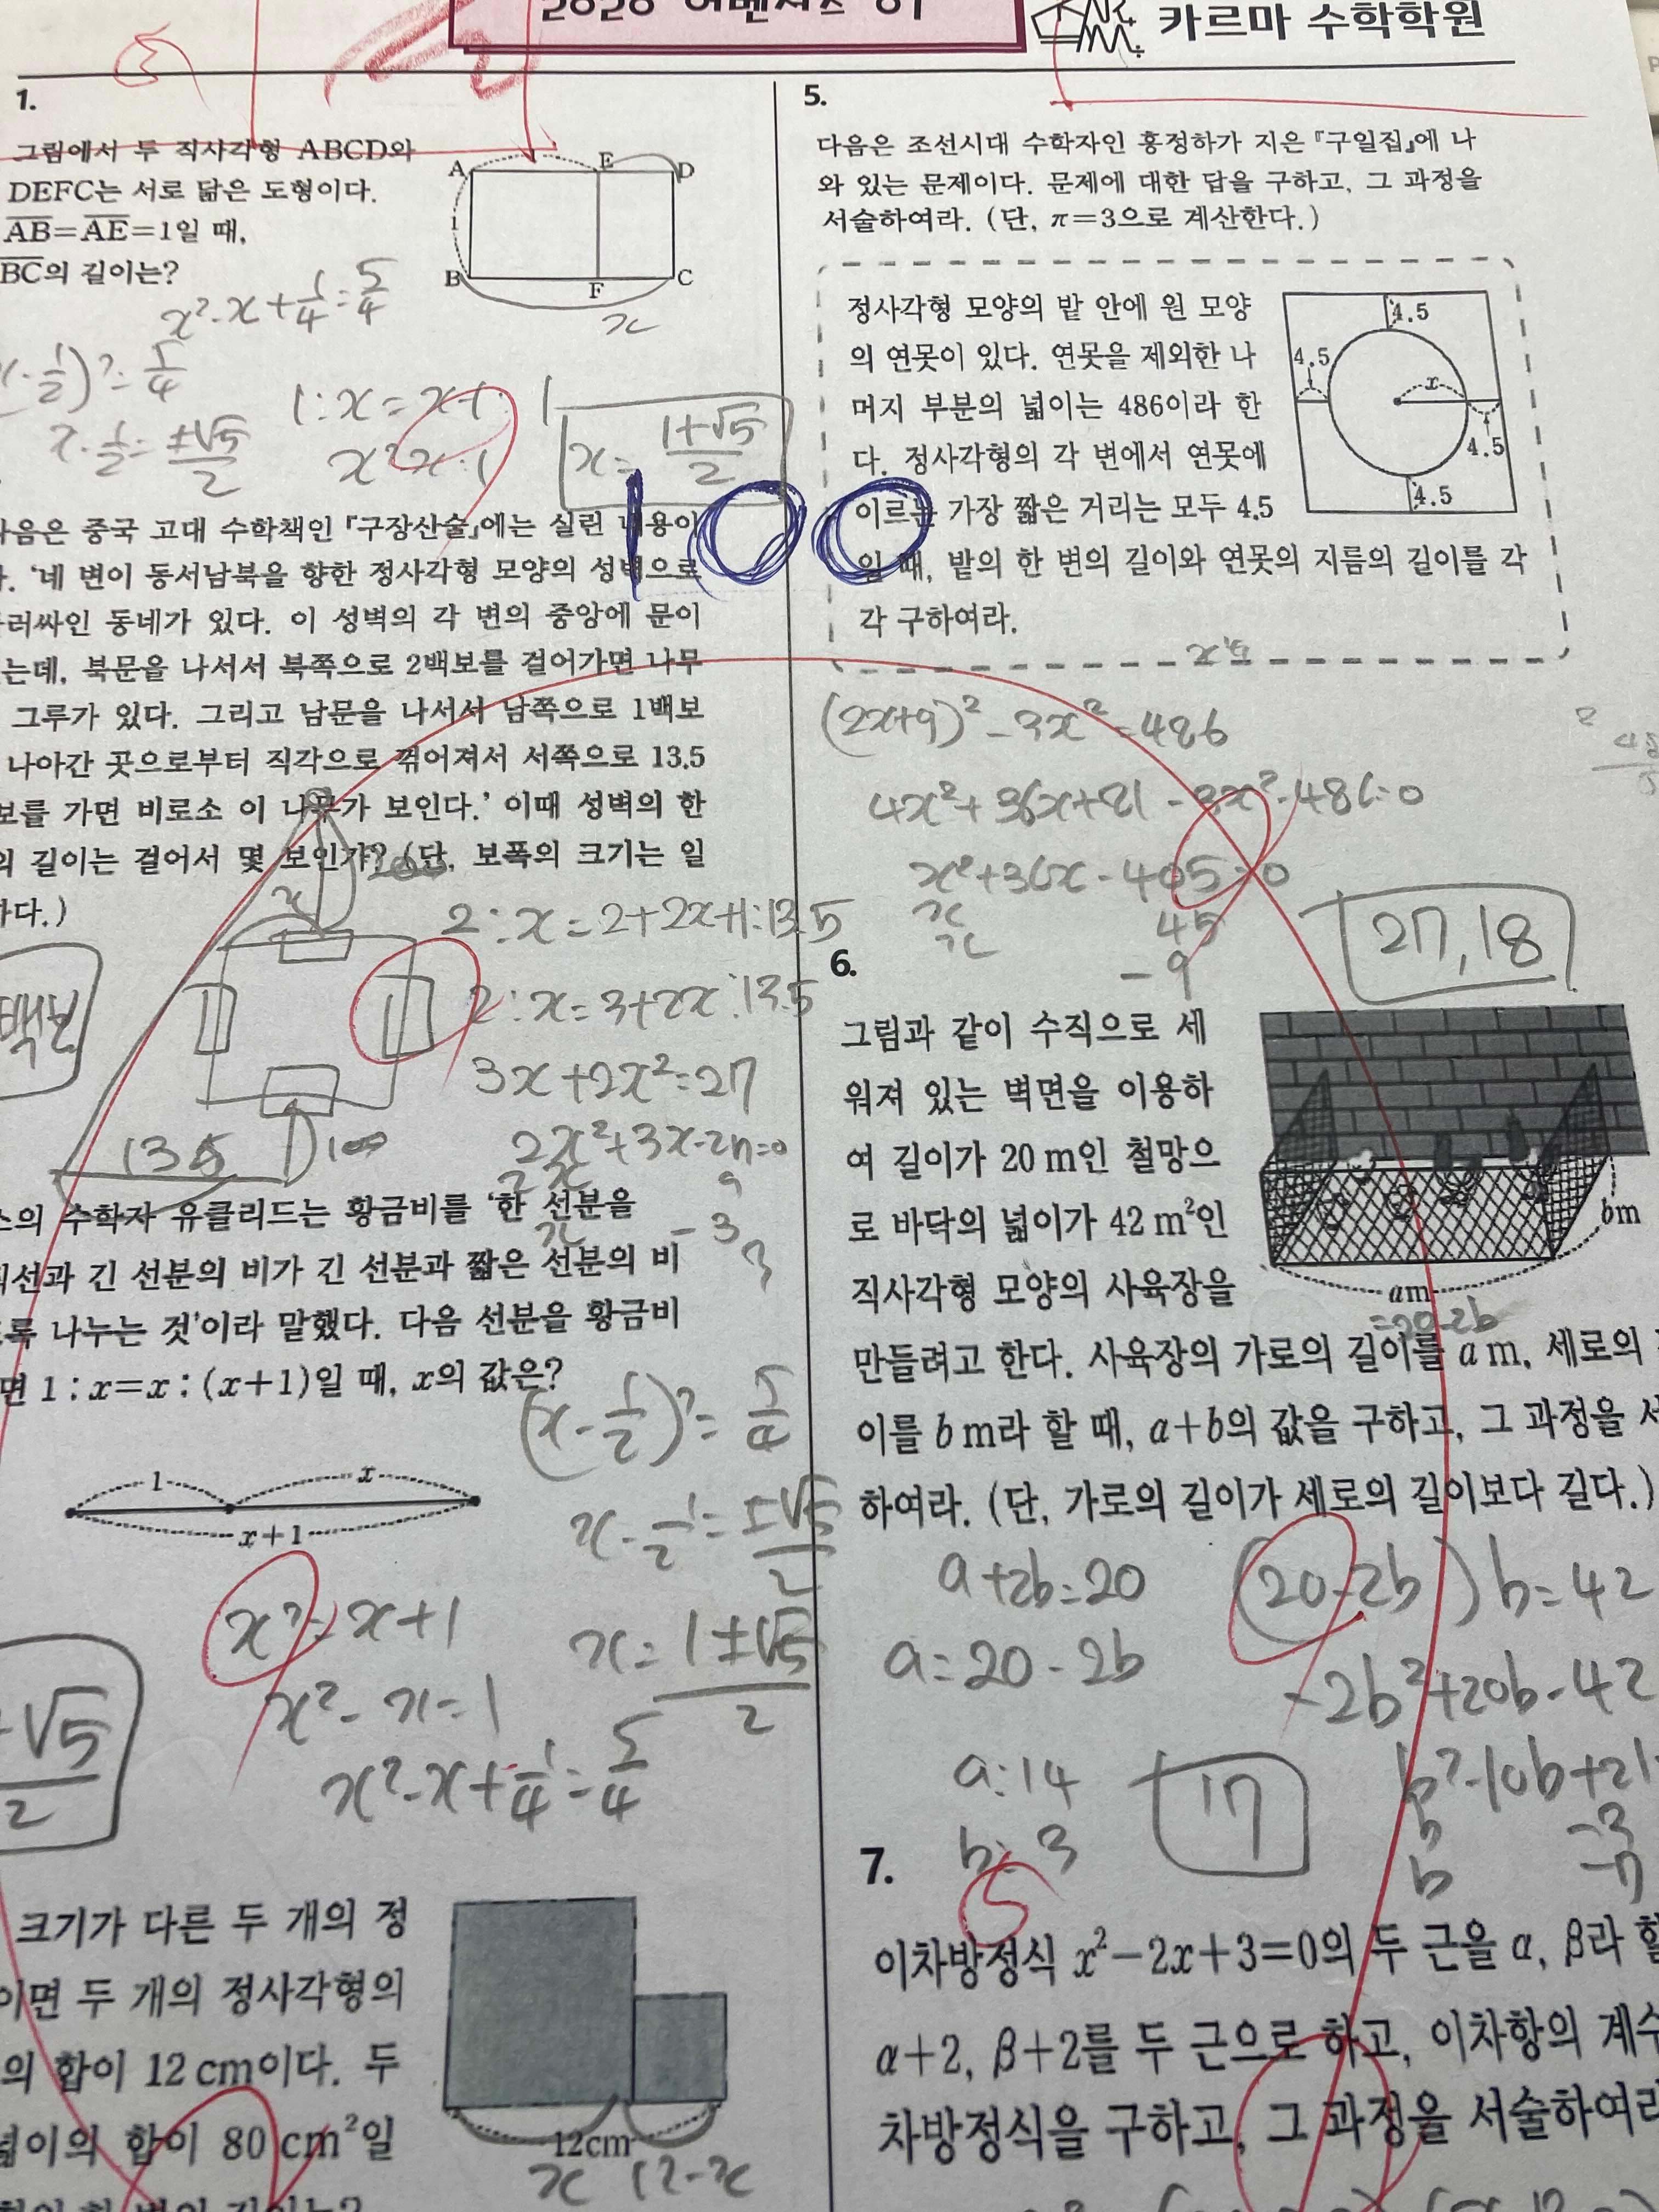 카르마 수학학원
1.
그림에서 두 직사각형 ABCD와
DEFC는 서로 닮은 도형이다.
AB=AE=1일 때,
BC의 길이는?
A E D
1
B F C
x
x²-x+1/4=5/4
1:x=x-1:1
x=(1+√5)/2
100
다음은 중국 고대 수학책인 『구장산술』에는 실린 내용이
'네 변이 동서남북을 향한 정사각형 모양의 성벽으로
러싸인 동네가 있다. 이 성벽의 각 변의 중앙에 문이
는데, 북문을 나서서 북쪽으로 2백보를 걸어가면 나무
그루가 있다. 그리고 남문을 나서서 남쪽으로 1백보
나아간 곳으로부터 직각으로 꺾어져서 서쪽으로 13.5
보를 가면 비로소 이 나무가 보인다.' 이때 성벽의 한
의 길이는 걸어서 몇 보인가? (단, 보폭의 크기는 일
하다.)
2:x=2+2x+1:13.5
2:x=3+2x:13.5
3x+2x²=27
2x²+3x-27=0
2x 9
x -3
3
백보
13.5
100
스의 수학자 유클리드는 황금비를 '한 선분을
직선과 긴 선분의 비가 긴 선분과 짧은 선분의 비
록 나누는 것'이라 말했다. 다음 선분을 황금비
면 1:x=x:(x+1)일 때, x의 값은?
1 x
x+1
(x-1/2)²=5/4
x-1/2=±√5/2
x=(1±√5)/2
x²=x+1
x²-x=1
x²-x+1/4=5/4
크기가 다른 두 개의 정
이면 두 개의 정사각형의
의 합이 12 cm이다. 두
넓이의 합이 80 cm²일
12cm
x 12-x
5.
다음은 조선시대 수학자인 홍정하가 지은 『구일집』에 나
와 있는 문제이다. 문제에 대한 답을 구하고, 그 과정을
서술하여라. (단, π=3으로 계산한다.)
정사각형 모양의 밭 안에 원 모양
의 연못이 있다. 연못을 제외한 나
머지 부분의 넓이는 486이라 한
다. 정사각형의 각 변에서 연못에
이르는 가장 짧은 거리는 모두 4.5
일 때, 밭의 한 변의 길이와 연못의 지름의 길이를 각
각 구하여라.
4.5
4.5
x
4.5
4.5
(2x+9)²-3x²=486
4x²+36x+81-3x²-486=0
x²+36x-405=0
x 45
x -9
27, 18
6.
그림과 같이 수직으로 세
워져 있는 벽면을 이용하
여 길이가 20 m인 철망으
로 바닥의 넓이가 42 m²인
직사각형 모양의 사육장을
만들려고 한다. 사육장의 가로의 길이를 a m, 세로의
이를 b m라 할 때, a+b의 값을 구하고, 그 과정을 서
하여라. (단, 가로의 길이가 세로의 길이보다 길다.)
bm
am
=20-2b
a+2b=20
a=20-2b
(20-2b)b=42
-2b²+20b-42
b²-10b+21
b -3
b -7
a:14
b:3
17
7.
이차방정식 x²-2x+3=0의 두 근을 α, β라 할
α+2, β+2를 두 근으로 하고, 이차항의 계수
차방정식을 구하고, 그 과정을 서술하여라